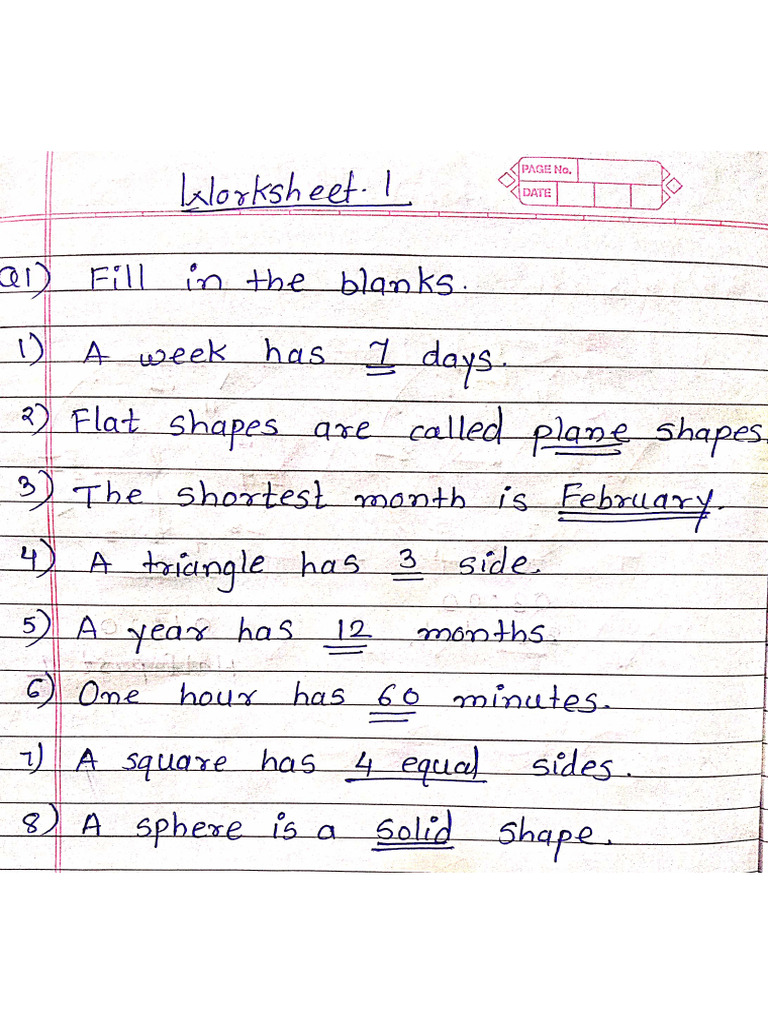 PAGE No.
DATE
Worksheet. 1
Q1) Fill in the blanks.
1) A week has 7 days.
2) Flat shapes are called plane shapes.
3) The shortest month is February.
4) A triangle has 3 side.
5) A year has 12 months
6) One hour has 60 minutes.
7) A square has 4 equal sides.
8) A sphere is a solid shape.